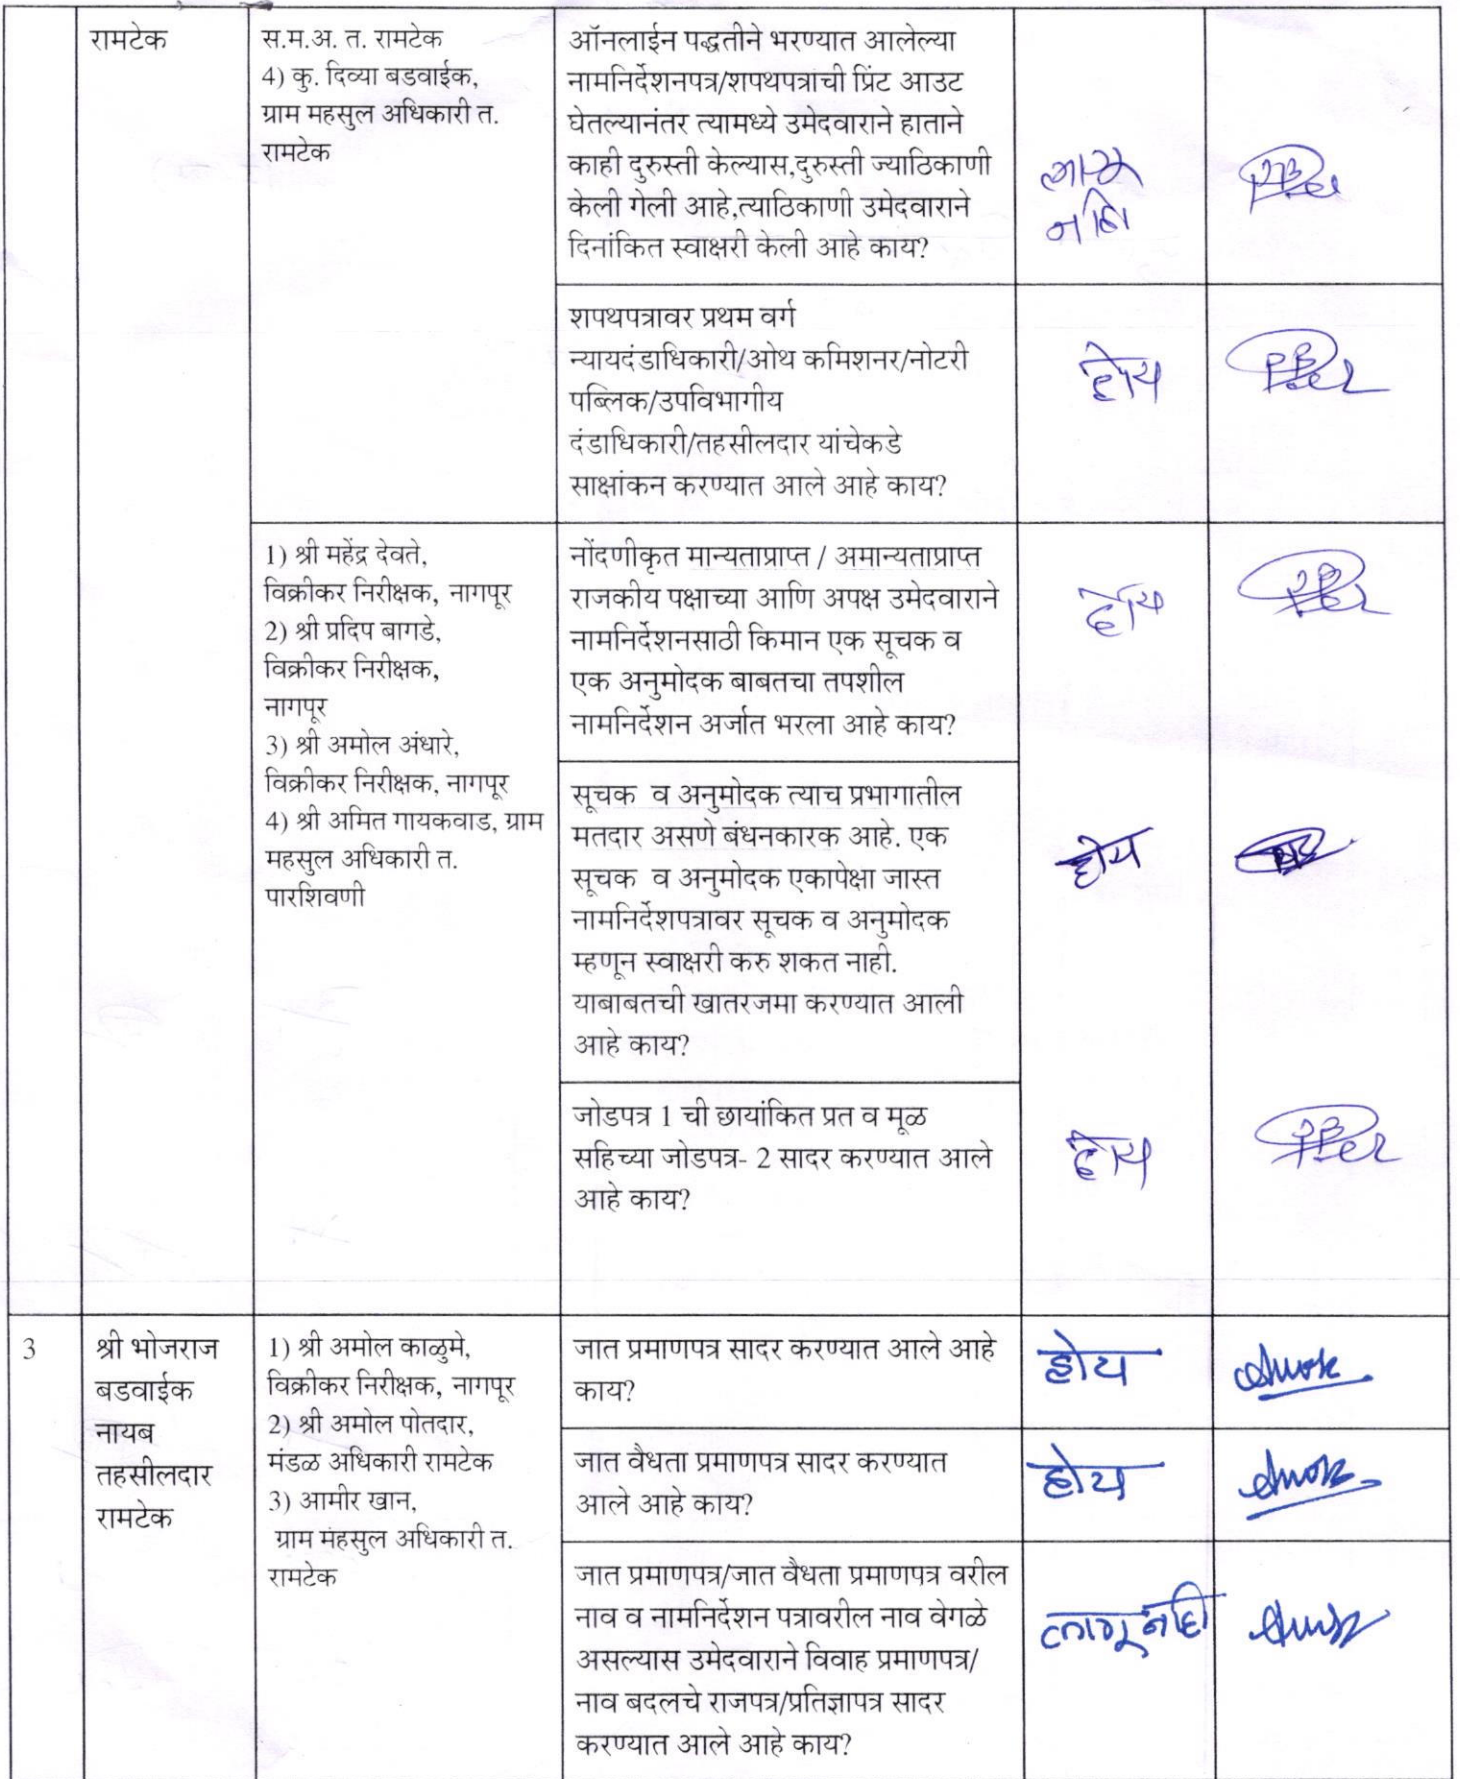 रामटेक
स.म.अ. त. रामटेक
4) कु. दिव्या बडवाईक,
ग्राम महसुल अधिकारी त.
रामटेक
ऑनलाईन पद्धतीने भरण्यात आलेल्या
नामनिर्देशनपत्र/शपथपत्राची प्रिंट आउट
घेतल्यानंतर त्यामध्ये उमेदवाराने हाताने
काही दुरुस्ती केल्यास,दुरुस्ती ज्याठिकाणी
केली गेली आहे,त्याठिकाणी उमेदवाराने
दिनांकित स्वाक्षरी केली आहे काय?
लागू
नाही
शपथपत्रावर प्रथम वर्ग
न्यायदंडाधिकारी/ओथ कमिशनर/नोटरी
पब्लिक/उपविभागीय
दंडाधिकारी/तहसीलदार यांचेकडे
साक्षांकन करण्यात आले आहे काय?
होय
1) श्री महेंद्र देवते,
विक्रीकर निरीक्षक, नागपूर
2) श्री प्रदिप बागडे,
विक्रीकर निरीक्षक,
नागपूर
3) श्री अमोल अंधारे,
विक्रीकर निरीक्षक, नागपूर
4) श्री अमित गायकवाड, ग्राम
महसुल अधिकारी त.
पारशिवणी
नोंदणीकृत मान्यताप्राप्त / अमान्यताप्राप्त
राजकीय पक्षाच्या आणि अपक्ष उमेदवाराने
नामनिर्देशनसाठी किमान एक सूचक व
एक अनुमोदक बाबतचा तपशील
नामनिर्देशन अर्जात भरला आहे काय?
होय
सूचक व अनुमोदक त्याच प्रभागातील
मतदार असणे बंधनकारक आहे. एक
सूचक व अनुमोदक एकापेक्षा जास्त
नामनिर्देशपत्रावर सूचक व अनुमोदक
म्हणून स्वाक्षरी करु शकत नाही.
याबाबतची खातरजमा करण्यात आली
आहे काय?
होय
जोडपत्र 1 ची छायांकित प्रत व मूळ
सहिच्या जोडपत्र- 2 सादर करण्यात आले
आहे काय?
होय
3
श्री भोजराज
बडवाईक
नायब
तहसीलदार
रामटेक
1) श्री अमोल काळुमे,
विक्रीकर निरीक्षक, नागपूर
2) श्री अमोल पोतदार,
मंडळ अधिकारी रामटेक
3) आमीर खान,
ग्राम मंहसुल अधिकारी त.
रामटेक
जात प्रमाणपत्र सादर करण्यात आले आहे
काय?
होय
जात वैधता प्रमाणपत्र सादर करण्यात
आले आहे काय?
होय
जात प्रमाणपत्र/जात वैधता प्रमाणपत्र वरील
नाव व नामनिर्देशन पत्रावरील नाव वेगळे
असल्यास उमेदवाराने विवाह प्रमाणपत्र/
नाव बदलचे राजपत्र/प्रतिज्ञापत्र सादर
करण्यात आले आहे काय?
लागू नाही